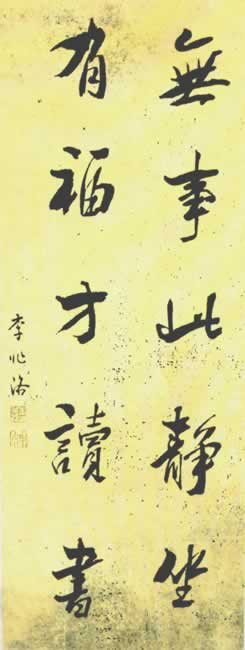 無事此靜坐
有福才讀書
李兆洛